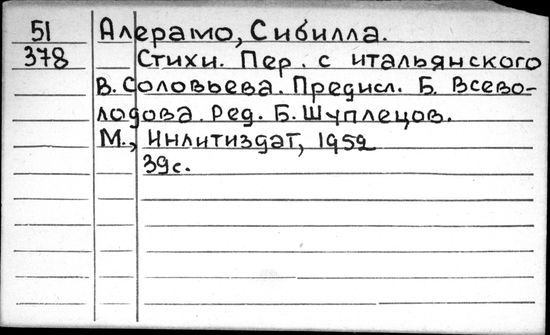 51 Алерамо, Сибилла.
378 Стихи. Пер. с итальянского
В. Соловьева. Предисл. Б. Всево-
лодова. Ред. Б. Шуплецов.
М., Инлитиздат, 1959
39с.